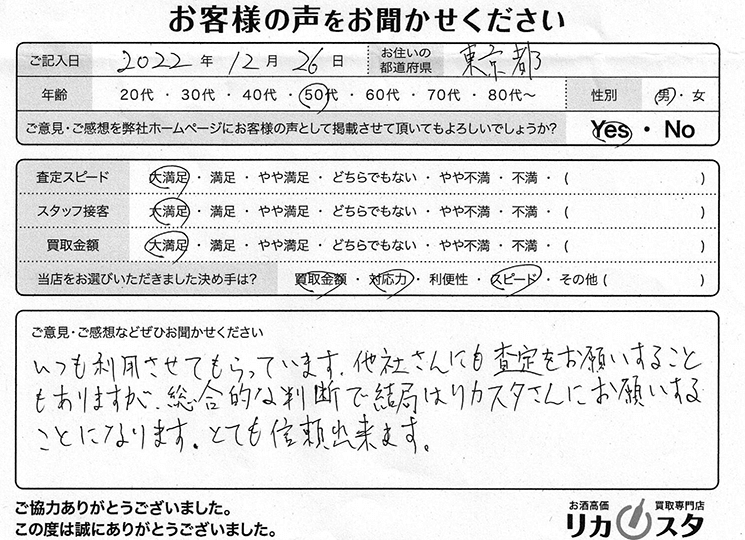 お客様の声をお聞かせください
ご記入日 2022 年 12 月 26 日 お住いの都道府県 東京都
年齢 20代 ・ 30代 ・ 40代 ・ 50代 ・ 60代 ・ 70代 ・ 80代〜 性別 男 ・ 女
ご意見・ご感想を弊社ホームページにお客様の声として掲載させて頂いてもよろしいでしょうか? Yes ・ No
査定スピード 大満足 ・ 満足 ・ やや満足 ・ どちらでもない ・ やや不満 ・ 不満 ・ ( )
スタッフ接客 大満足 ・ 満足 ・ やや満足 ・ どちらでもない ・ やや不満 ・ 不満 ・ ( )
買取金額 大満足 ・ 満足 ・ やや満足 ・ どちらでもない ・ やや不満 ・ 不満 ・ ( )
当店をお選びいただきました決め手は? 買取金額 ・ 対応力 ・ 利便性 ・ スピード ・ その他 ( )
ご意見・ご感想などぜひお聞かせください
いつも利用させてもらっています。他社さんにも査定をお願いすること
もありますが、総合的な判断で結局はリカスタさんにお願いする
ことになります。とても信頼出来ます。
ご協力ありがとうございました。
この度は誠にありがとうございました。
お酒高価 買取専門店
リカスタ